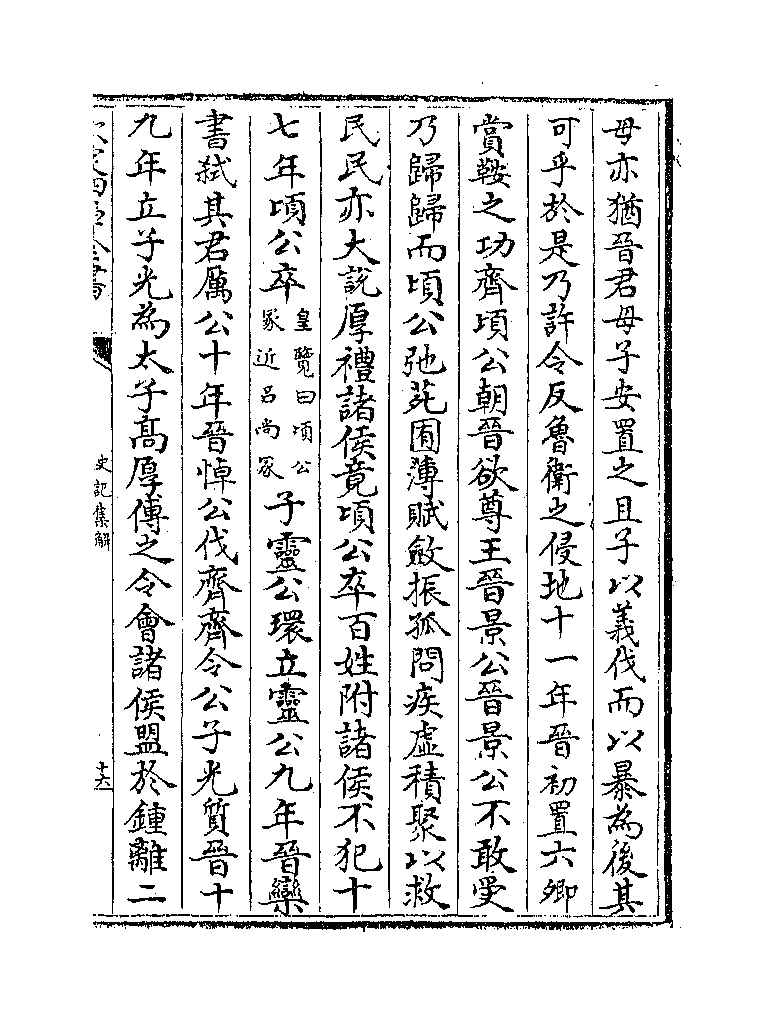 母亦猶晉君母子安置之且子以義伐而以暴為後其
可乎於是乃許令反魯衛之侵地十一年晉初置六卿
賞鞍之功齊頃公朝晉欲尊王晉景公晉景公不敢受
乃歸歸而頃公弛苑囿薄賦斂振孤問疾虛積聚以救
民民亦大說厚禮諸侯竟頃公卒百姓附諸侯不犯十
七年頃公卒
皇覽曰頃公
冢近吕尚冢
子靈公環立靈公九年晉欒
書弑其君厲公十年晉悼公伐齊齊令公子光質晉十
九年立子光為太子高厚傅之令會諸侯盟於鍾離二
史記集解
十六